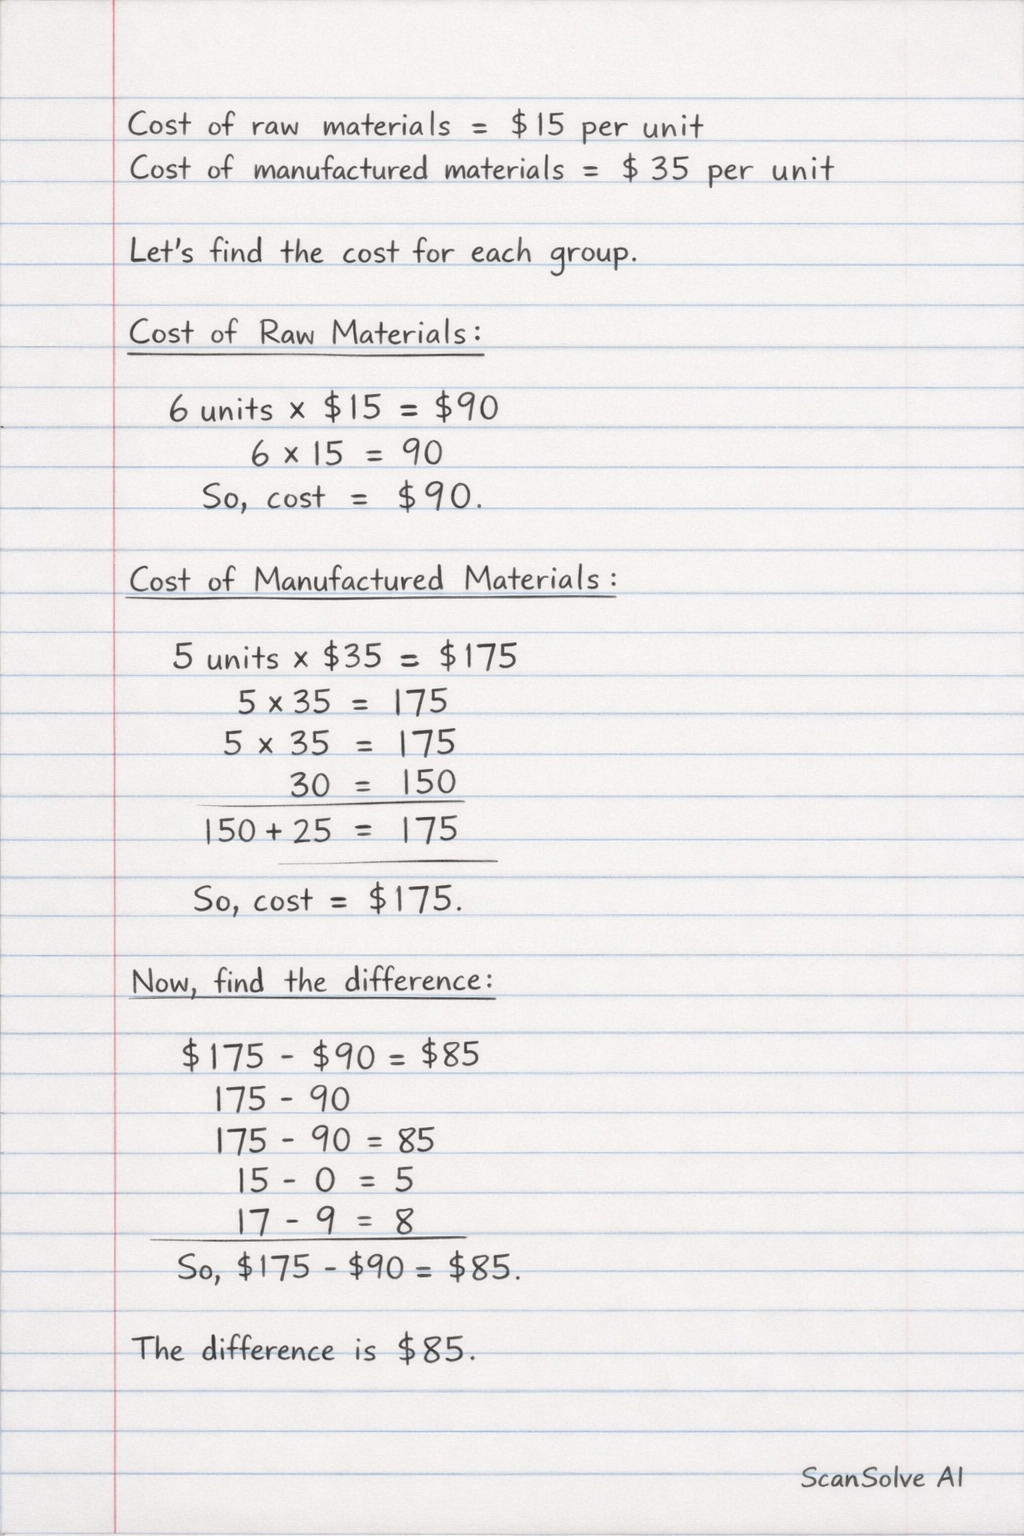 Cost of raw materials = $15 per unit
Cost of manufactured materials = $35 per unit
Let's find the cost for each group.
Cost of Raw Materials:
6 units × $15 = $90
6 × 15 = 90
So, cost = $90.
Cost of Manufactured Materials:
5 units × $35 = $175
5 × 35 = 175
5 × 35 = 175
30 = 150
150 + 25 = 175
So, cost = $175.
Now, find the difference:
$175 - $90 = $85
175 - 90
175 - 90 = 85
15 - 0 = 5
17 - 9 = 8
So, $175 - $90 = $85.
The difference is $85.
ScanSolve AI